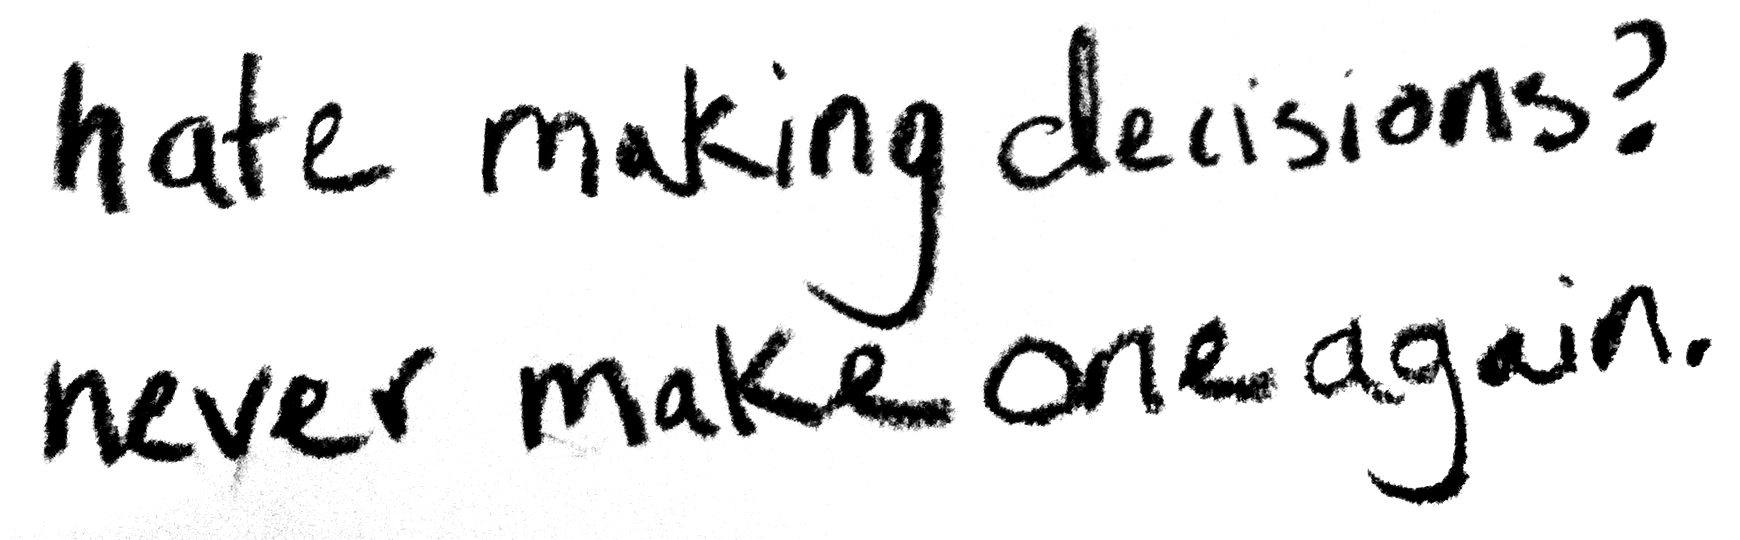 hate making decisions?
never make one again.